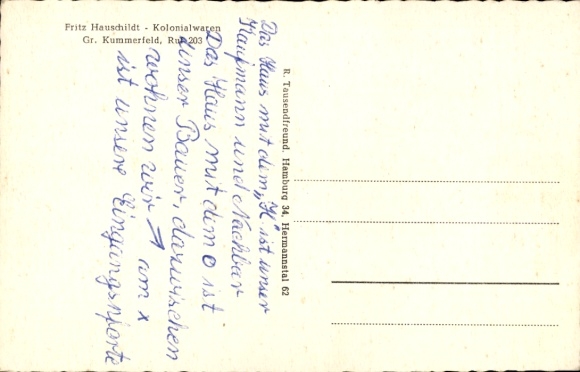 Fritz Hauschildt - Kolonialwaren
Gr. Kummerfeld, Ruf 203
Das Haus mit dem „K" ist unser
Kaufmann und Nachbar
Das Haus mit dem o ist
unser Bauer, dazwischen
wohnen wir → am x
ist unsere Eingangspforte
R. Tausendfreund, Hamburg 34, Hermannstal 62